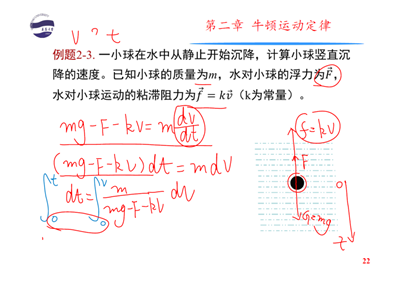 第二章 牛顿运动定律
V ? t
例题2-3. 一小球在水中从静止开始沉降，计算小球竖直沉
降的速度。已知小球的质量为m，水对小球的浮力为F⃗，
水对小球运动的粘滞阻力为f⃗ = kv⃗（k为常量）。
mg-F-kV=m dV/dt
(mg-F-kV)dt = m dV
t V
dt = m/(mg-F-kV) dV
0 0
f=kV
F
0
G=mg
22